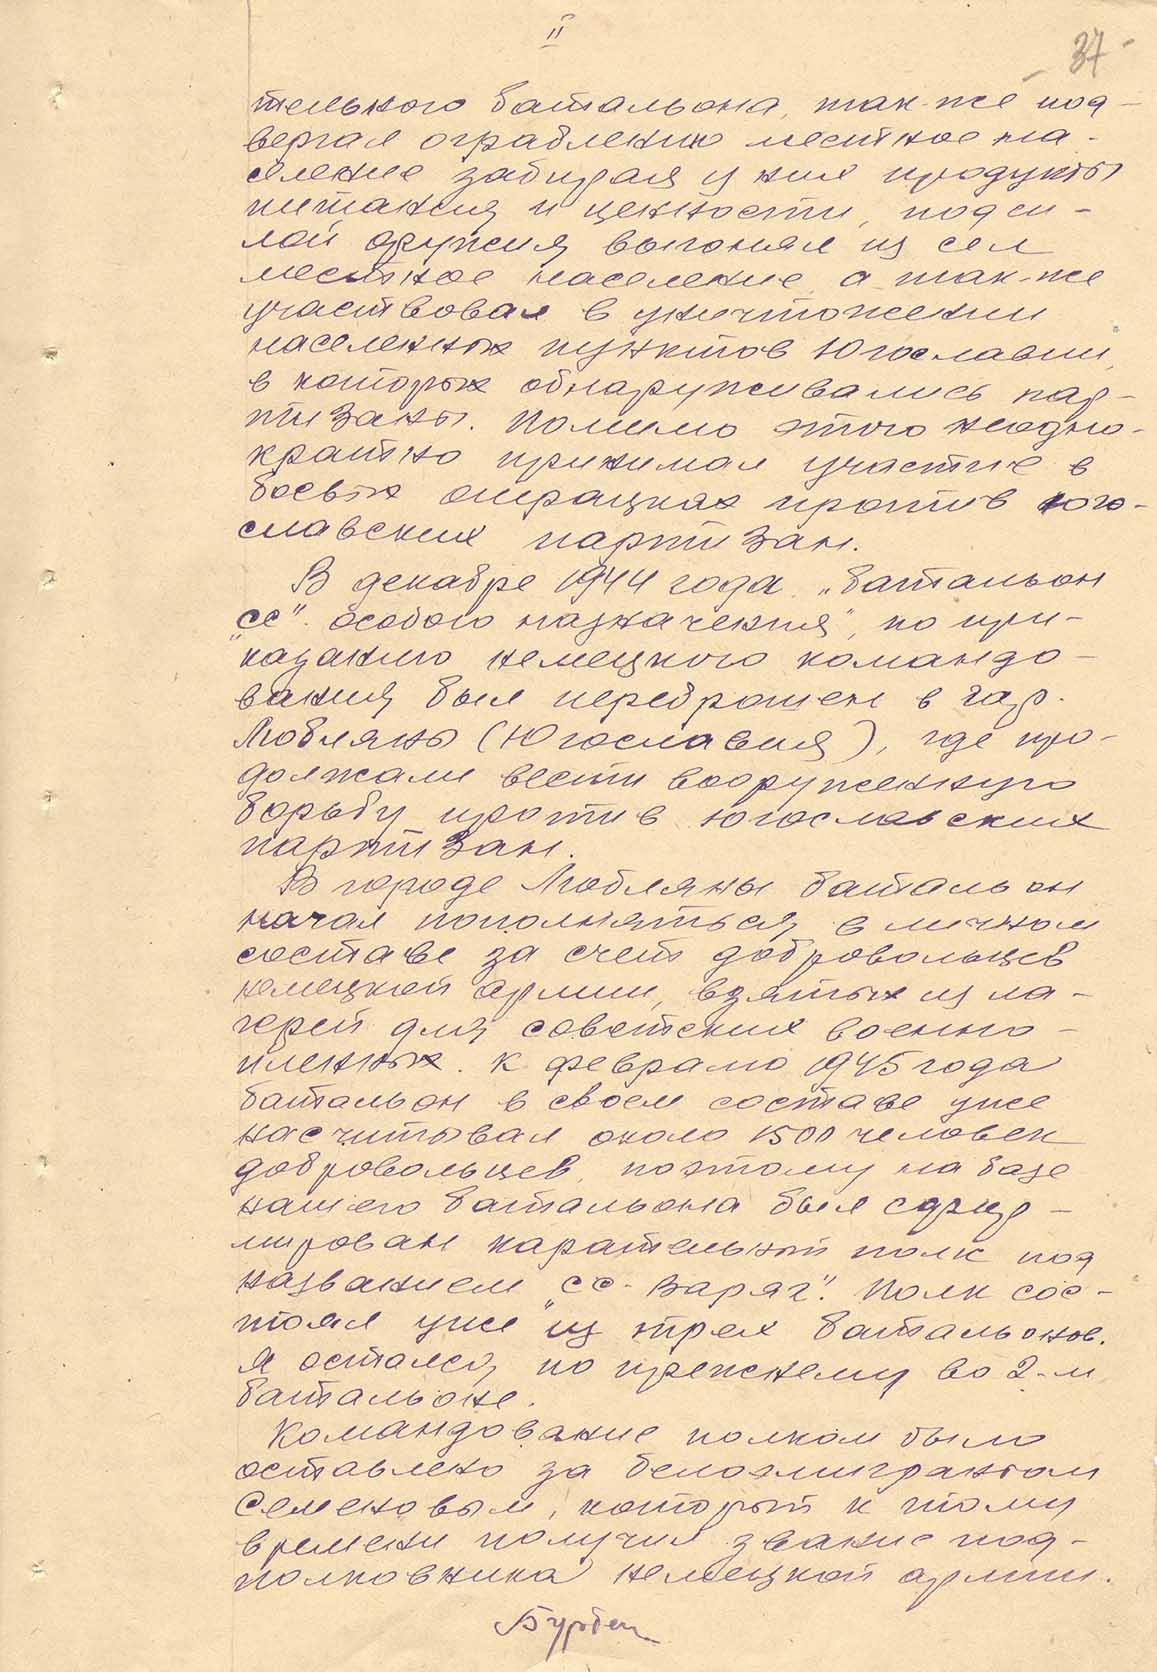 II
37
тельного батальона, так-же под-
вергал ограблению местное на-
селение забирая у них продукты
питания и ценности, под си-
лой оружия выгонял из сел
местное население, а так-же
участвовал в уничтожении
населенных пунктов Югославии,
в которых обнаруживались пар-
тизаны. Помимо этого неодно-
кратно принимал участие в
боевых операциях против юго-
славских партизан.
В декабре 1944 года „батальон
„СС" особого назначения", по при-
казанию немецкого командо-
вания был переброшен в гор.
Любляны (Югославия), где про-
должали вести вооруженную
борьбу против югославских
партизан.
В городе Любляны батальон
начал пополняться в личном
составе за счет добровольцев
немецкой армии, взятых из ла-
герей для советских военно-
пленных. К февралю 1945 года
батальон в своем составе уже
насчитывал около 1500 человек
добровольцев, поэтому на базе
нашего батальона был сфор-
мирован карательный полк под
названием „СС-Варяг". Полк сос-
тоял уже из трех батальонов.
Я остался по прежнему во 2-м
батальоне.
Командование полком было
оставлено за белоэмигрантом
Семеновым, который к тому
времени получил звание под-
полковника немецкой армии.